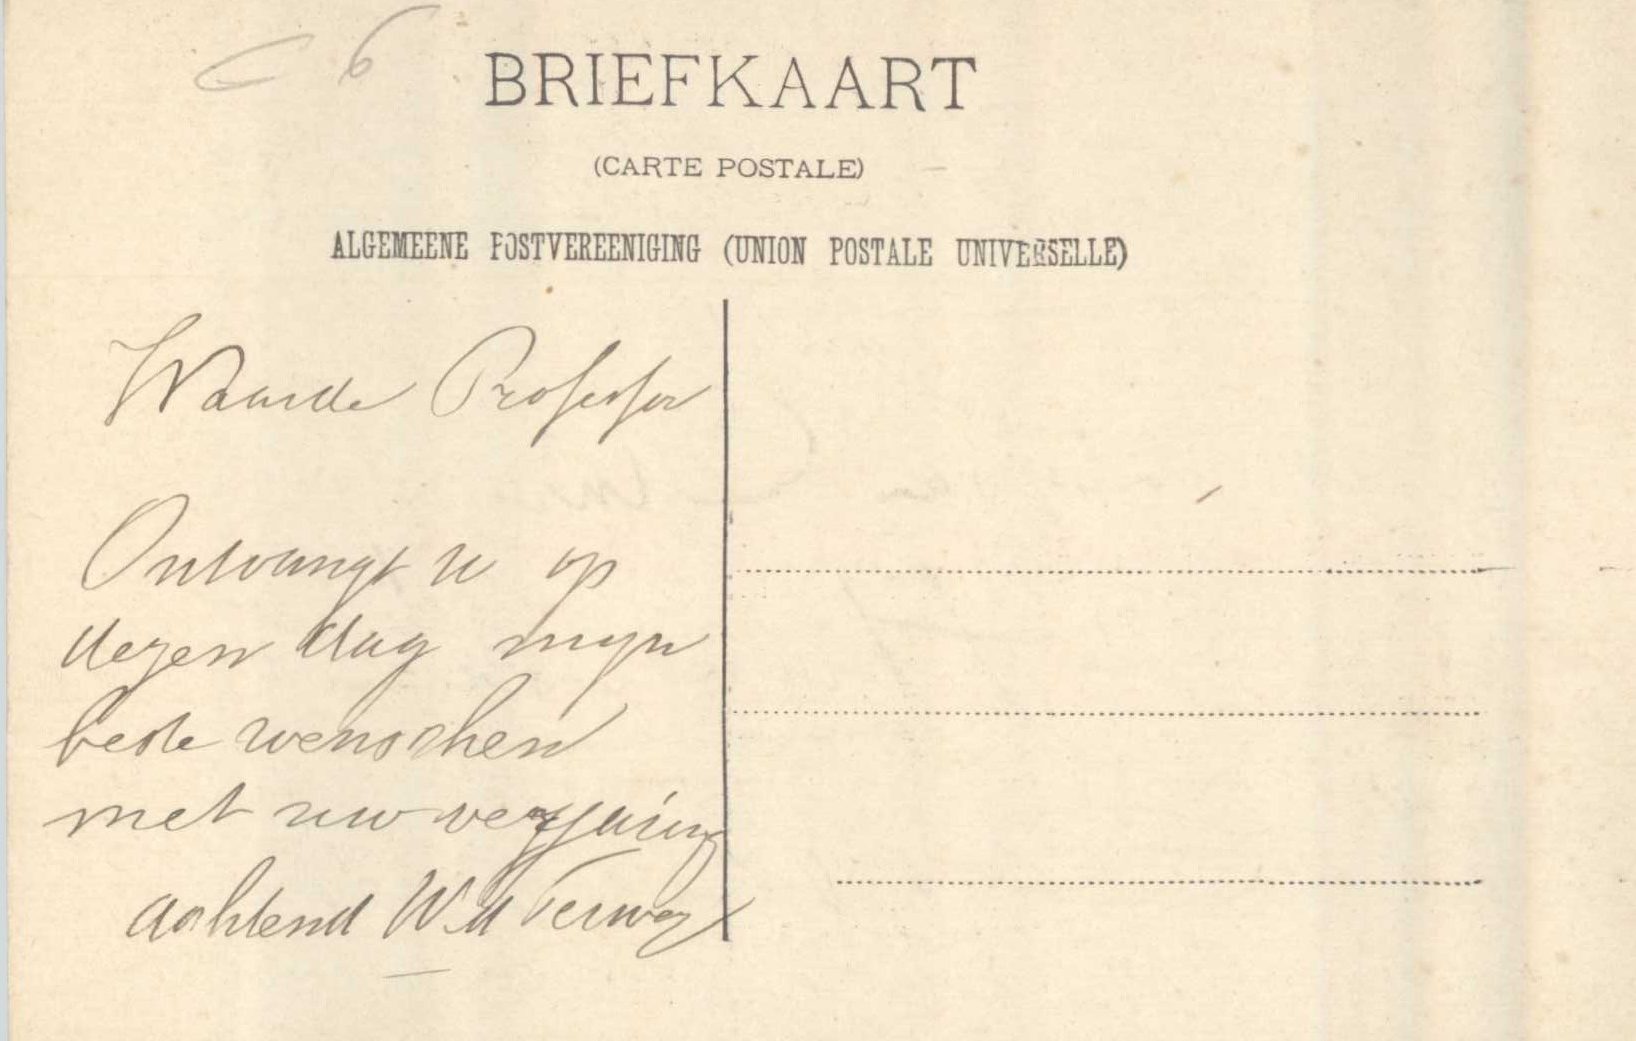 C 6
BRIEFKAART
(CARTE POSTALE)
ALGEMEENE POSTVEREENIGING (UNION POSTALE UNIVERSELLE)
Waarde Professor
Ontvangt u op
dezen dag mijn
beste wenschen
met uw verjaring
achtend W.